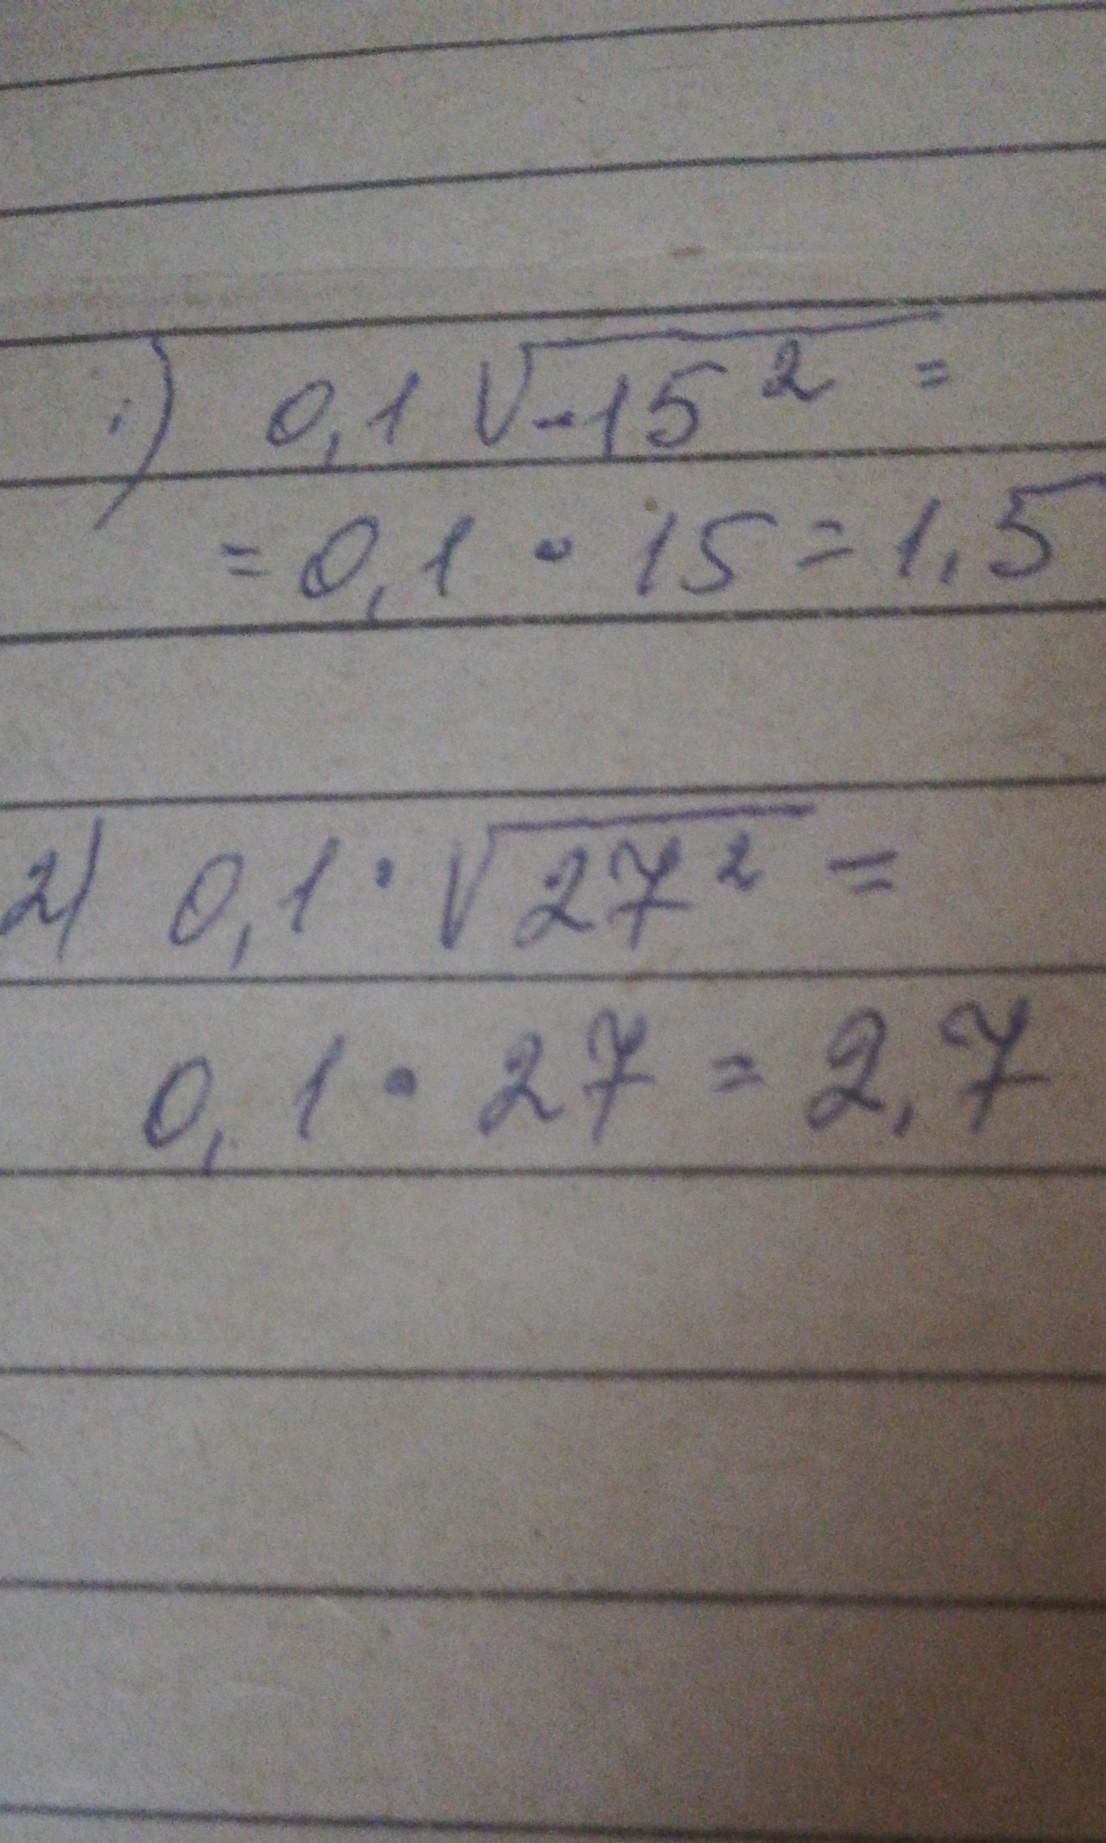 1) 0,1 √-15² =
= 0,1 • 15 = 1,5
2) 0,1 • √27² =
0,1 • 27 = 2,7